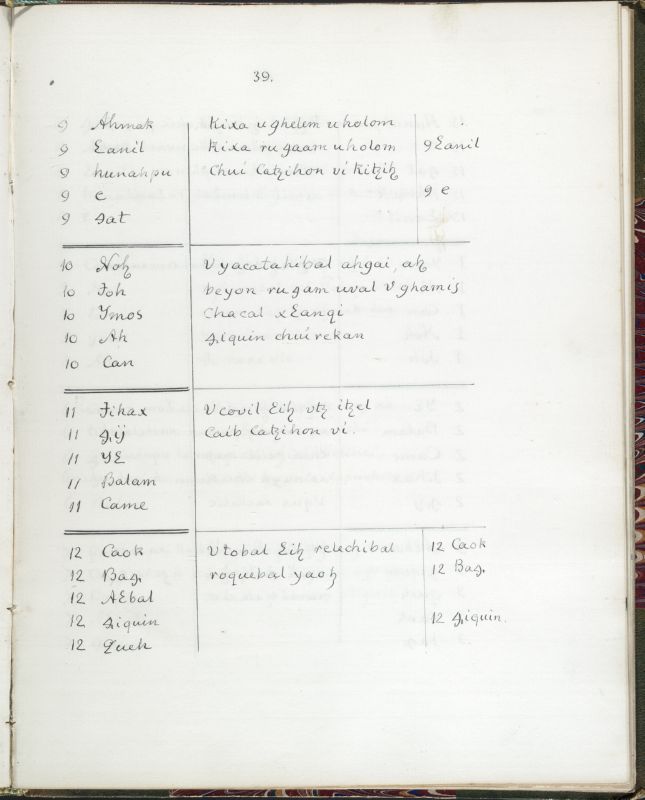 39.
9 Ahmak Kixa u ghelem uholom
9 Eanil Kixa ru gaam uholom 9 Eanil
9 hunahpu Chui Catzihon vi Kitzih
9 e 9 e
9 gat
10 Noh V yacatahibal ahgai, ah
10 Toh beyon ru gam uval V ghamis
10 Ymos Chacal xEangi
10 Ah giquin chui rekan
10 Can
11 Tihax V covil Eih utz itzel
11 gij Caib Catzihon vi.
11 YE
11 Balam
11 Came
12 Caok V tobal Eih relechibal 12 Caok
12 Bag, roquebal yaoh 12 Bag,
12 AEbal
12 giquin 12 giquin.
12 Queh